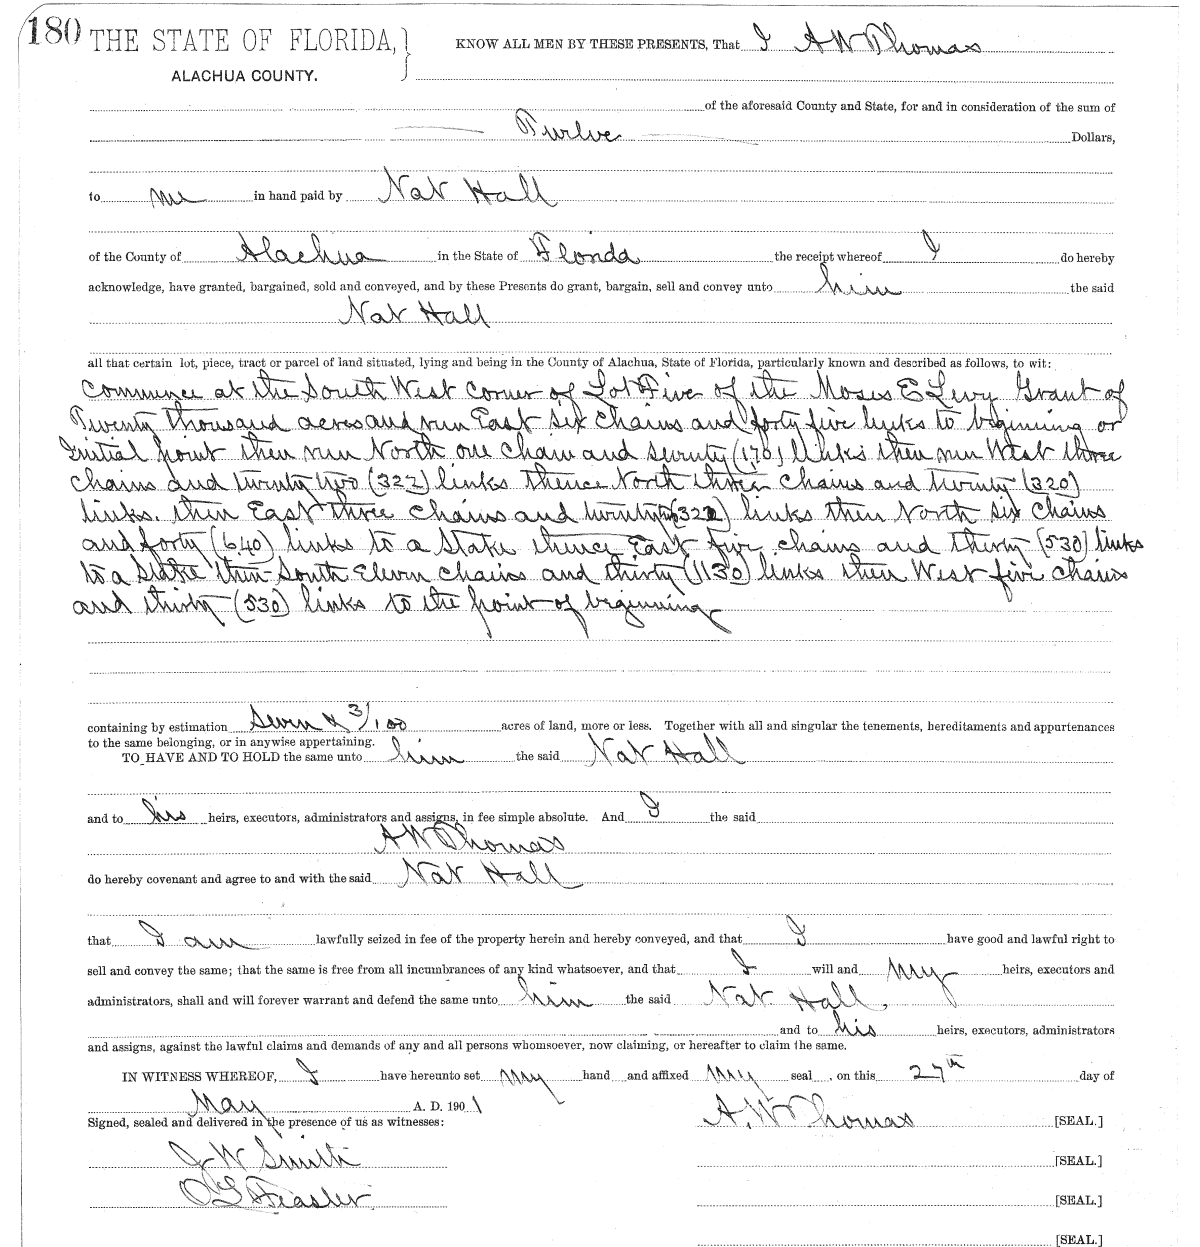 180 THE STATE OF FLORIDA,
KNOW ALL MEN BY THESE PRESENTS, That I A W Thomas
ALACHUA COUNTY.
of the aforesaid County and State, for and in consideration of the sum of
Twelve Dollars,
to me in hand paid by Nat Hall
of the County of Alachua in the State of Florida the receipt whereof I do hereby
acknowledge, have granted, bargained, sold and conveyed, and by these Presents do grant, bargain, sell and convey unto him the said
Nat Hall
all that certain lot, piece, tract or parcel of land situated, lying and being in the County of Alachua, State of Florida, particularly known and described as follows, to wit:
Commence at the South West Corner of Lot Five of the Moses E Levy Grant of
Twenty thousand acres and run East six chains and forty five links to beginning or
Initial point then run North one chain and seventy (170) links then run West three
chains and twenty two (322) links thence North three chains and twenty (320)
links. then East three chains and twenty two (322) links then North six chains
and forty (640) links to a Stake thence East five chains and thirty (530) links
to a Stake then South Eleven chains and thirty (1130) links then West five chains
and thirty (530) links to the point of beginning
containing by estimation Seven & 3/100 acres of land, more or less. Together with all and singular the tenements, hereditaments and appurtenances
to the same belonging, or in anywise appertaining.
TO HAVE AND TO HOLD the same unto him the said Nat Hall
and to his heirs, executors, administrators and assigns, in fee simple absolute. And I the said
A W Thomas
do hereby covenant and agree to and with the said Nat Hall
that I am lawfully seized in fee of the property herein and hereby conveyed, and that I have good and lawful right to
sell and convey the same; that the same is free from all incumbrances of any kind whatsoever, and that I will and my heirs, executors and
administrators, shall and will forever warrant and defend the same unto him the said Nat Hall,
and to his heirs, executors, administrators
and assigns, against the lawful claims and demands of any and all persons whomsoever, now claiming, or hereafter to claim the same.
IN WITNESS WHEREOF, I have hereunto set my hand and affixed my seal, on this 27th day of
May A. D. 1901
Signed, sealed and delivered in the presence of us as witnesses: A. W Thomas [SEAL.]
J W Smith [SEAL.]
O G Feaster [SEAL.]
[SEAL.]